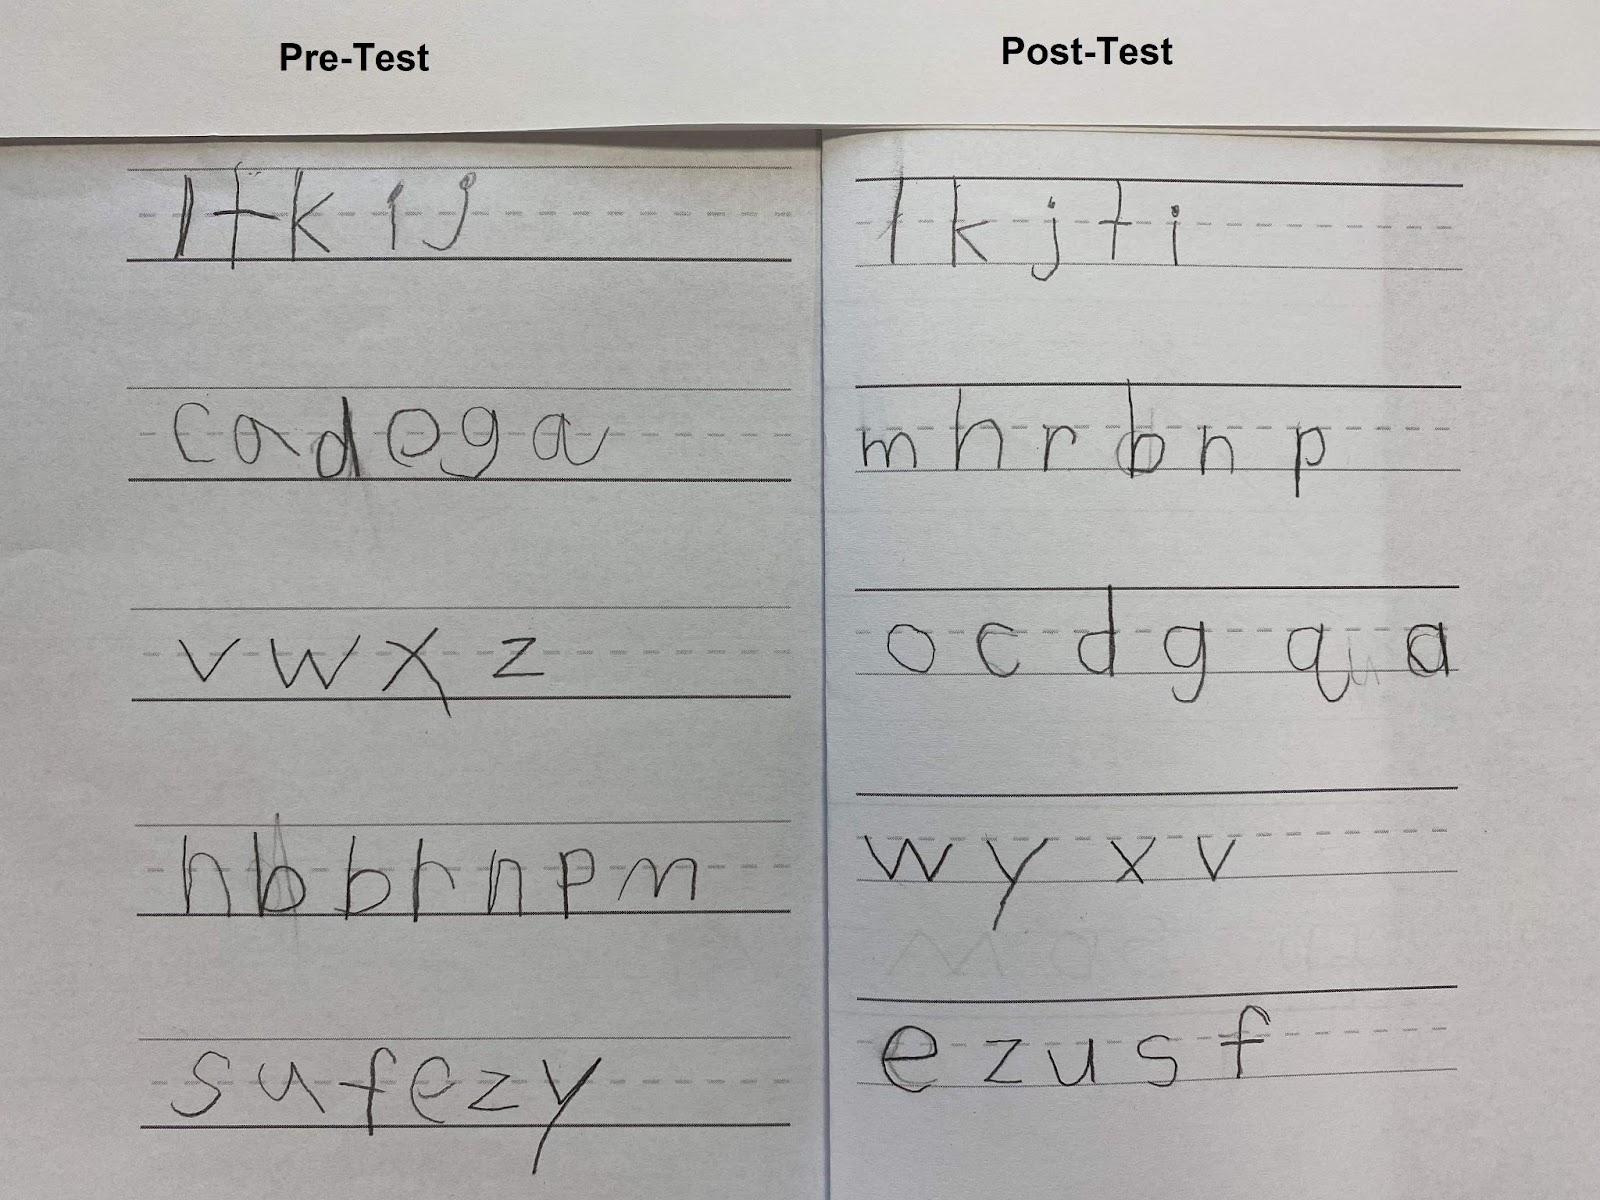 Pre-Test
l t k i j
c a d o g a
v w x z
h b b r n p m
s u f e z y
Post-Test
l k j t i
m h r b n p
o c d g q a
w y x v
e z u s f